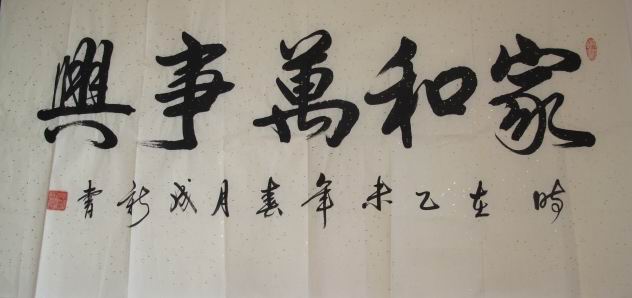 家和萬事興
時在乙未年春月成新書